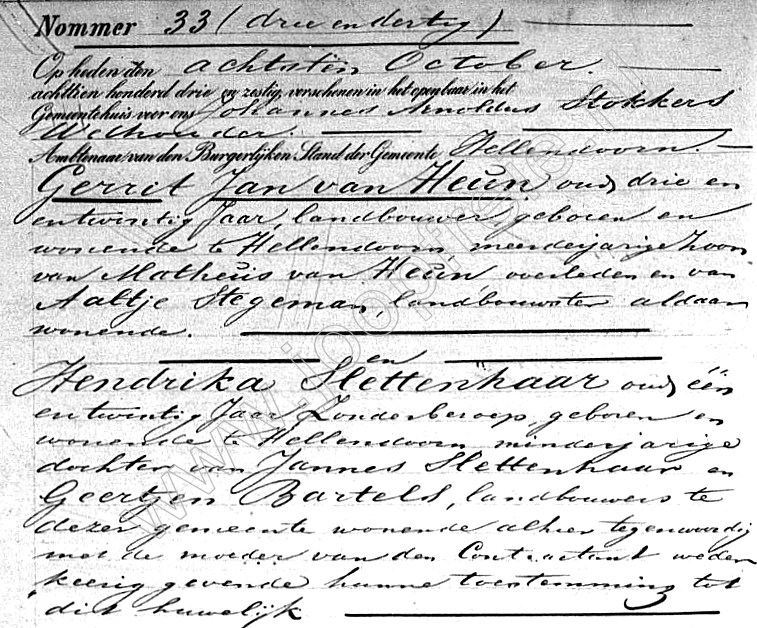 Nommer 33 (drie en dertig)
Op heden den achtstin October.
achttien honderd drie en zestig, verschenen in het openbaar in het
Gemeentehuis voor ons Johannes Arnoldus Stokkers
Wethouder.
Ambtenaar van den Burgerlijken Stand der Gemeente Hellendoorn.
Gerrit Jan van Heün oud drie en
entwintig Jaar, landbouwer, geboren en
wonende te Hellendoorn meerderjarige zoon
van Matheüs van Heün, overleden en van
Aaltje Stegeman, landbouwster aldaar
wonende.
en
Hendrika Slettenhaar oud één
entwintig Jaar Zonderberoep, geboren en
wonende te Hellendoorn minderjarige
dochter van Jannes Slettenhaar en
Geertjen Bartels, landbouwers te
dezer gemeente wonende alhier tegenwoordig
met de moeder van den Contractant weder
keerig gevende hunne toestemming tot
dit huwelijk